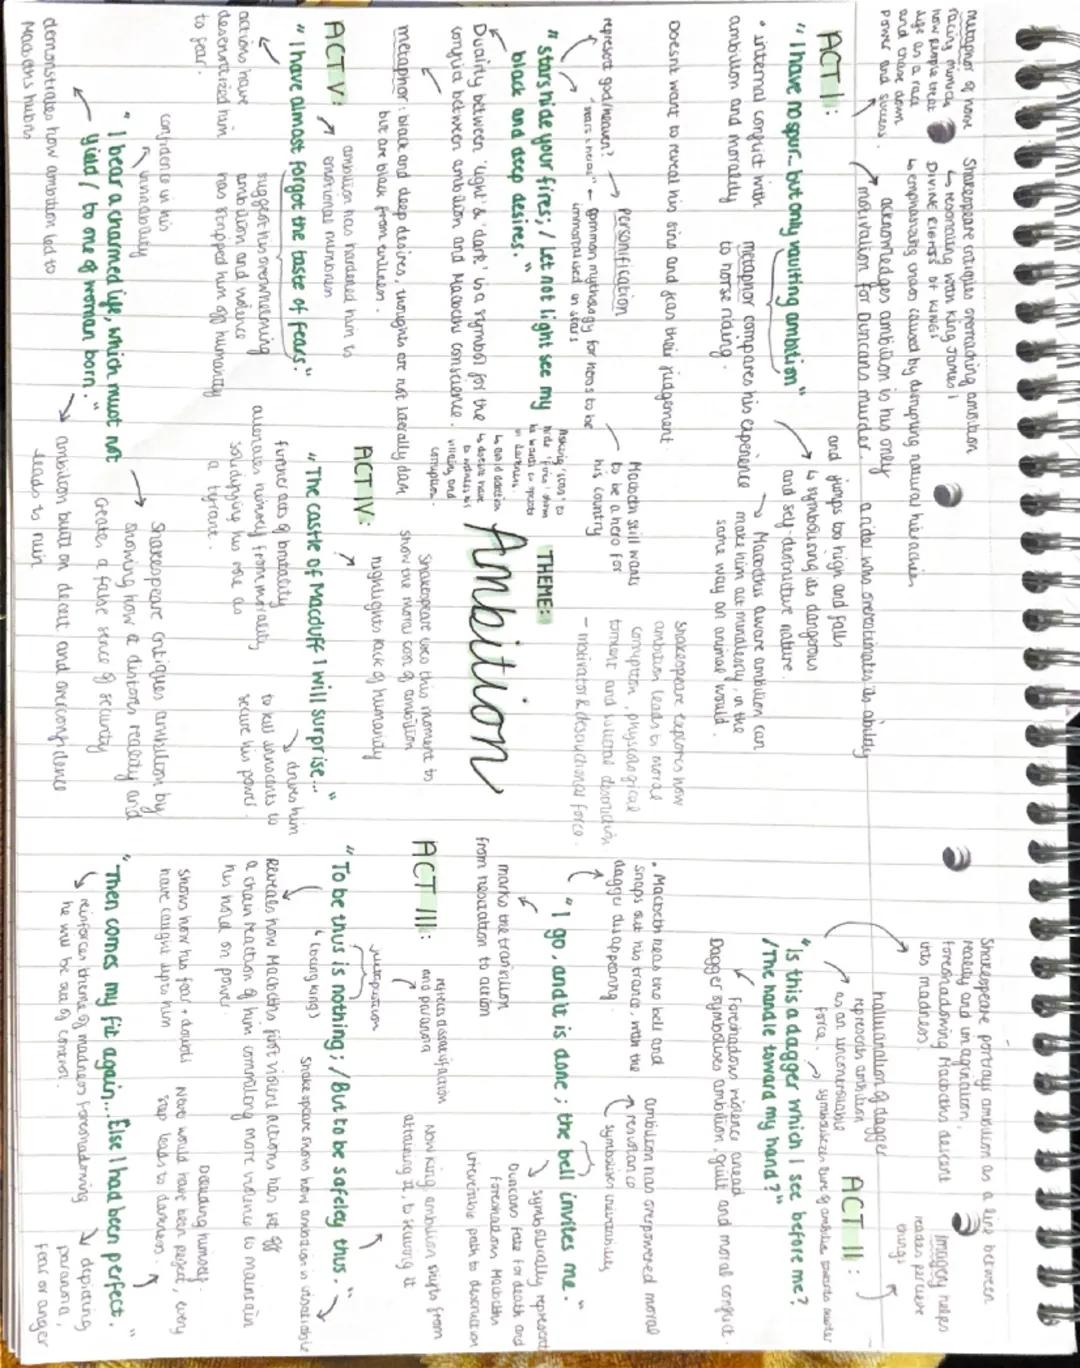 metaphor of horse
racing mimics
how people treat
life as a race
and chase down
power and success.
Shakespeare critiques overreaching ambition
↳ resonating with King James I
DIVINE RIGHTS OF KINGS
↳ emphasising chaos caused by disrupting natural hierachies
ACT I:
acknowledges ambition is his only
motivation for Duncans murder.
a rider who overestimates its ability
and jumps too high and falls
↳ symbolising its dangerous
and self-destructive nature.
"I have no spur... but only vaulting ambition"
• internal conflict with
ambition and morality
metaphor compares his experience
to horse riding.
Macbeth is aware ambition can
make him act mindlessly, in the
same way an animal would.
Doesnt want to reveal his sins and fears their judgement.
represent god/heaven?
Personification
"stars = heros" - common mythology for heros to be
immortalised in stars
Macbeth still wants
to be a hero for
his country
"stars hide your fires; / Let not light see my
black and deep desires."
Asking 'stars' to
hide 'fires' shows
he wants to operate
in darkness.
↳ avoid detection
↳ doesnt want
to witness his
villainy and
corruption
Duality between 'light' & 'dark' is a symbol for the
conflict between ambition and Macbeths conscience.
metaphor: black and deep desires, thoughts are not literally dark
but are black from evilness.
THEME:
Ambition
Shakespeare explores how
ambition leads to moral
corruption, physological
torment and sucietal destruction
- motivator & desructional force.
ACT II:
Shakespeare portrays ambition as a line between
reality and imagination,
foreshadowing Macbeths descent
into madness.
imagery helps
readers percieve
things
hallucination of dagger
represents ambition
as an uncontrollable
force.
symbolises lure of ambition towards murder
"Is this a dagger which I see before me?
/The handle toward my hand?"
Foreshadows violence ahead
Dagger symbolises ambition, guilt and moral conflict.
• Macbeth hears the bell and
snaps out his trance, with the
dagger disappearing
ambition has overpowered moral
resistance
symbolises inevitability
"I go, and it is done; the bell invites me."
marks the transition
from hesitation to action
symbolically represent
Duncans fate for death and
foreshadows Macbeths
irreversible path to destruction
ACT III:
reflects dissatisfaction
and paranoia
Now king, ambition shifts from
attaining it, to securing it
juxtaposition
"To be thus is nothing; / But to be safeley thus."
↳ (being king)
Shakespeare shows how ambition is insatiable
Reveals how Macbeths first violent actions has set off
a chain reaction of him commiting more violence to maintain
his hold on power.
shows how his fear + doubts
have caught up to him
Doubting himself.
Neve would have been perfect, every
step leads to darkness.
"Then comes my fit again... Else I had been perfect."
reinforces theme of madness foreshadowing
he will be out of control.
depicting
paranoia,
fear or anger
ACT IV:
Shakespeare uses this moment to
show the moral cost of ambition
highlights lack of humanity
"The castle of Macduff I will surprise..."
further acts of brutality
alienates himself from morality
solidifying his role as
a tyrant.
drives him
to kill innocents to
secure his power.
ACT V:
ambition has hardened him to
emotional numbness
"I have almost forgot the taste of fears."
actions have
desensitized him
to fear.
suggest his overwhelming
ambition and violence
has stripped him off humanity
confidence in his
"I bear a charmed life, which must not
yield / to one of woman born."
demonstrates how ambition led to
Macbeths hubris
Shakespeare critiques ambition by
showing how it distores reality and
creates a false sence of security
ambition built on deceit and overconfidence
leads to ruin